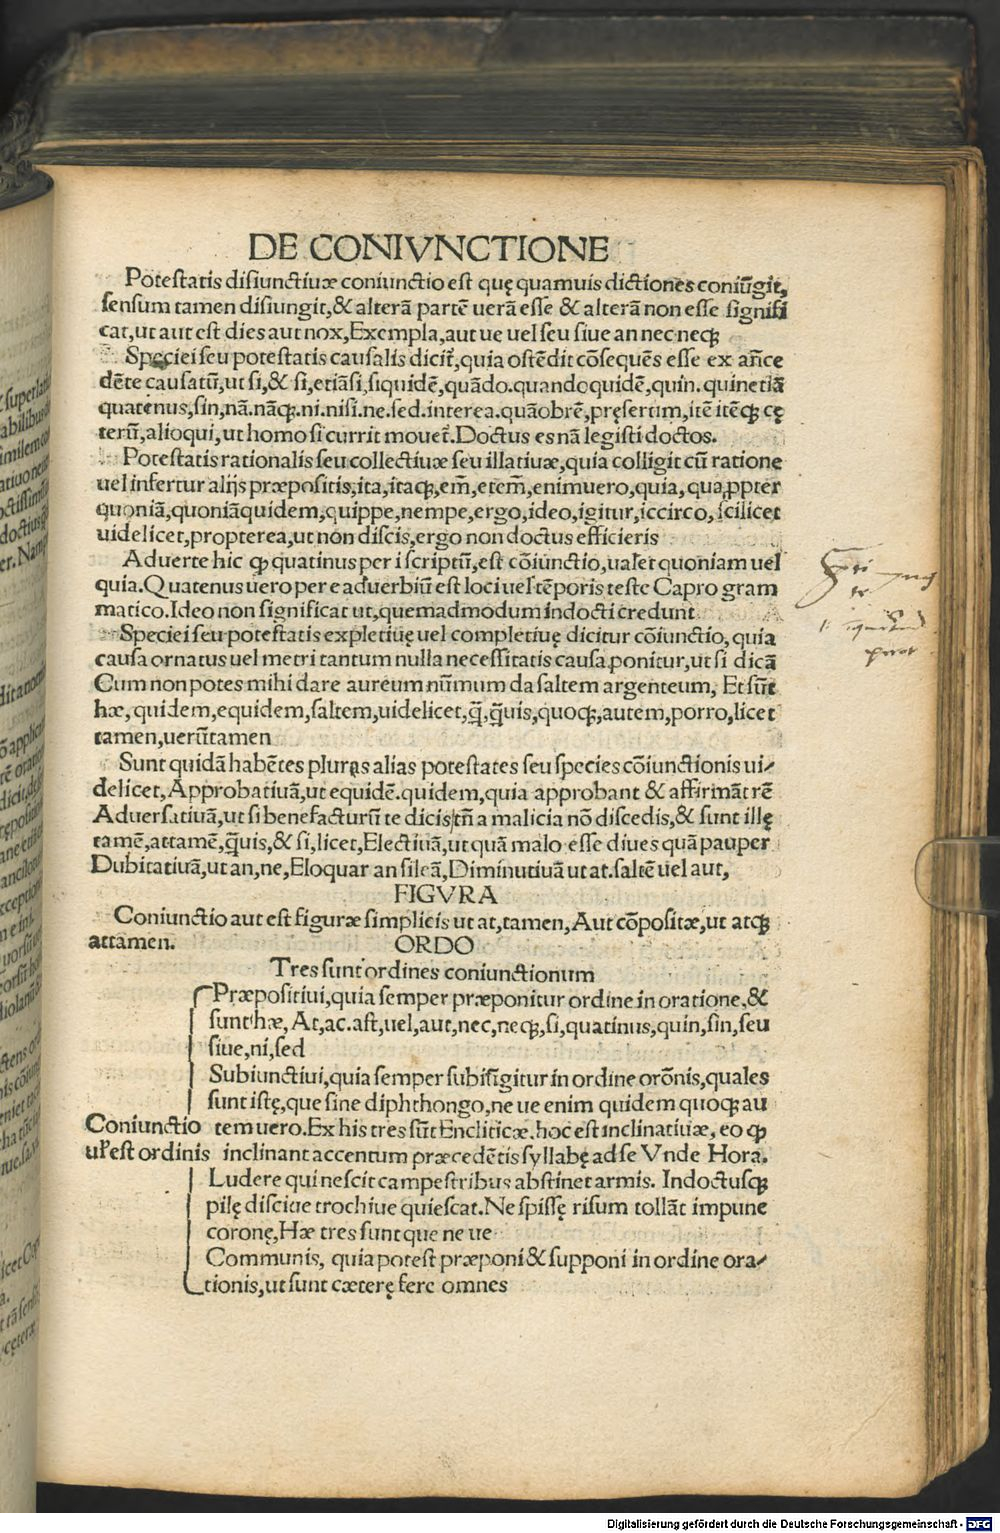 DE CONIVNCTIONE
Potestatis disiunctiuæ coniunctio est quę quamuis dictiones coniūgit,
sensum tamen disiungit,& alterā partē uerā esse & alterā non esse signifi
cat,ut aut est dies aut nox,Exempla,aut ue uel seu siue an nec necꝗ
Speciei seu potestatis causalis dicit̃,quia ostēdit cōsequēs esse ex añce
dēte causatū,ut si,& si,etiāsi,siquidē,quādo.quandoquidē,quin.quinetiā
quatenus,sin,nā.nācꝗ.ni.nisi.ne.sed.interea.quāobrē,pręsertim,itē itēcꝗ cę
terū,alioqui,ut homo si currit mouet̃.Doctus es nā legisti doctos.
Potestatis rationalis seu collectiuæ seu illatiuæ,quia colligit cū ratione
uel infertur alijs præpositis,ita,itacꝗ,em̄,etem̄,enimuero,quia,qua,ꝓpter
quoniā,quoniāquidem,quippe,nempe,ergo,ideo,igitur,iccirco,scilicet
uidelicet,propterea,ut non discis,ergo non doctus efficieris
Aduerte hic ꝙ quatinus per i scriptū,est cōiunctio,ualet quoniam uel
quia.Quatenus uero per e aduerbiū est loci uel tēporis teste Capro gram
matico.Ideo non significat ut,quemadmodum indocti credunt
Speciei seu potestatis expletiuę uel completiuę dicitur cōiunctio,quia
causa ornatus uel metri tantum nulla necessitatis causa ponitur,ut si dicā
Cum non potes mihi dare aureum nūmum da saltem argenteum, Et sūt
hæ, quidem,equidem,saltem,uidelicet,ꝗ̃,ꝗ̃uis,quocꝗ,autem,porro,licet
tamen,uerūtamen
Sunt quidā habētes plures alias potestates seu species cōiunctionis ui⸗
delicet,Approbatiuā,ut equidē.quidem,quia approbant & affirmāt rē
Aduersatiuā,ut si benefacturū te dicis,tñ a malicia nō discedis,& sunt illę
tamē,attamē,ꝗ̃uis,& si,licet,Electiuā,ut quā malo esse diues quā pauper
Dubitatiuā,ut an,ne,Eloquar an sileā,Diminutiuā ut at.saltē uel aut,
FIGVRA
Coniunctio aut est figuræ simplicis ut at,tamen,Aut cōpositæ,ut atcꝗ
attamen. ORDO
Tres sunt ordines coniunctionum
Præpositiui,quia semper præponitur ordine in oratione,&
sunt hæ, At,ac.ast,uel,aut,nec,necꝗ,si,quatinus,quin,sin,seu
siue,ni,sed
Subiunctiui,quia semper subiūgitur in ordine orōnis,quales
sunt istę,que sine diphthongo,ne ue enim quidem quocꝗ au
Coniunctio tem uero.Ex his tres sūt Encliticæ.hoc est inclinatiuæ, eo ꝙ
uł est ordinis inclinant accentum præcedētis syllabę ad se Vnde Hora.
Ludere qui nescit campestribus abstinet armis. Indoctuscꝗ
pilę disciue trochiue quiescat.Ne spissę risum tollāt impune
coronę,Hæ tres sunt que ne ue
Communis, quia potest præponi & supponi in ordine ora⸗
tionis,ut sunt cæterę fere omnes
Digitalisierung gefördert durch die Deutsche Forschungsgemeinschaft - DFG